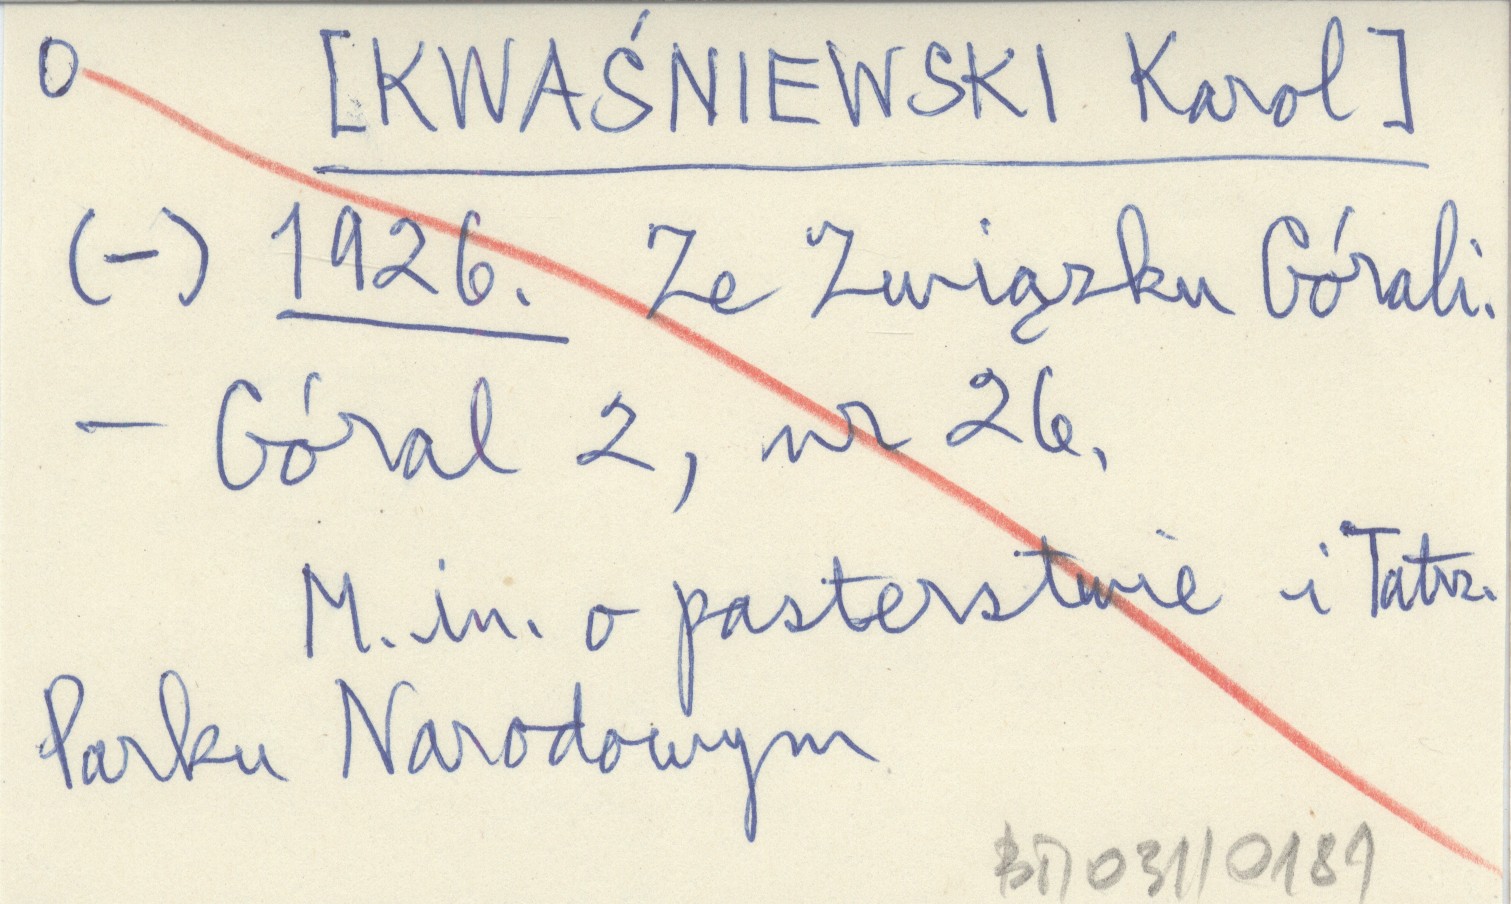 O [KWAŚNIEWSKI Karol]
(-) 1926. Ze Związku Górali.
- Góral 2, nr 26.
M.in. o pasterstwie i Tatrz.
Parku Narodowym
031/0189